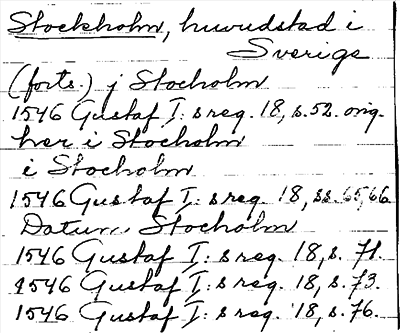 Stockholm, huvudstad i
Sverige
(forts.) j Stocholm
1546 Gustaf I: s reg. 18, s. 52. orig.
her i Stocholm
i Stocholm
1546 Gustaf I: s reg. 18, ss. 65, 66
Datum Stocholm
1546 Gustaf I: s reg. 18, s. 71.
1546 Gustaf I: s reg. 18, s. 73.
1546 Gustaf I: s reg. 18, s. 76.